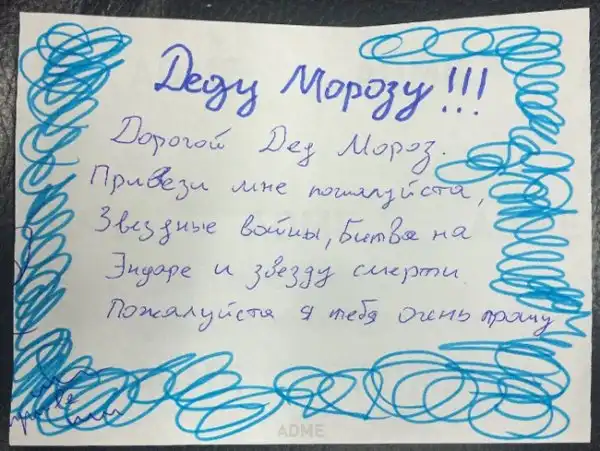 Деду Морозу!!!
Дорогой Дед Мороз.
Привези мне пожалуйста,
Звездные войны, Битва на
Эндаре и звезду смерти
Пожалуйста я тебя очень прошу
ADME